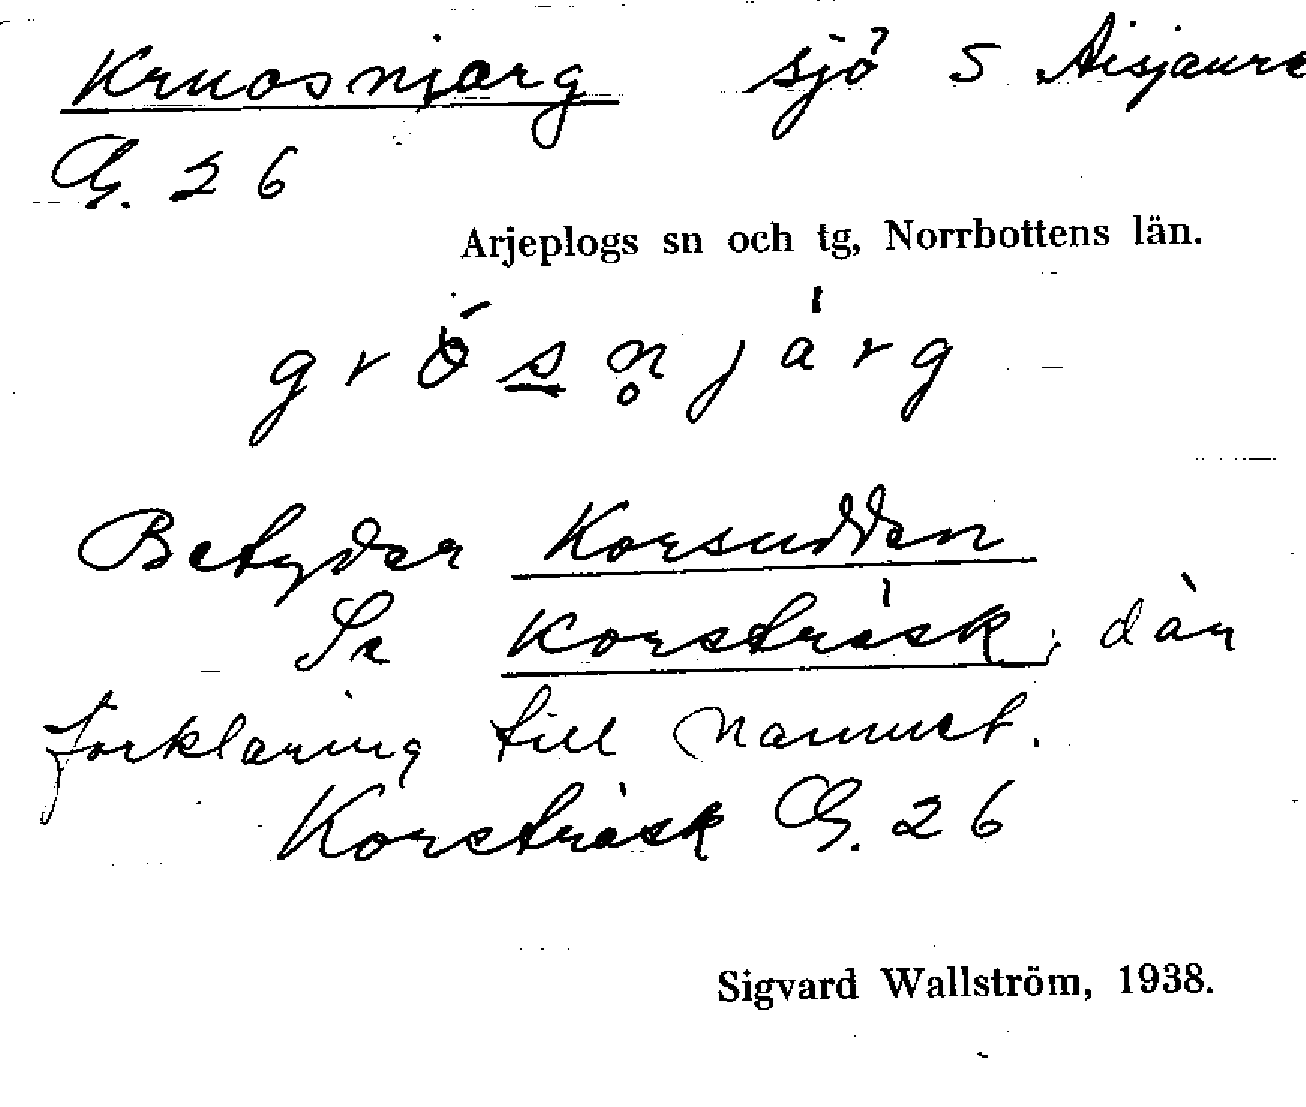 Kruosnjarg sjö S Aisjaure
G. 26
Arjeplogs sn och tg, Norrbottens län.
g r ó s n̥ j á r g
Betyder Korsudden
Se Korsträsk, där
förklaring till namnet.
Korsträsk G. 26
Sigvard Wallström, 1938.